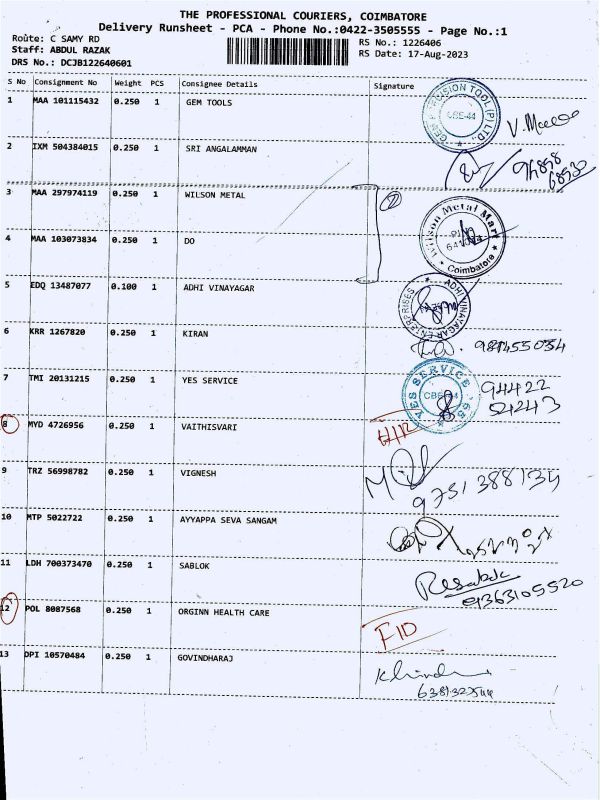 THE PROFESSIONAL COURIERS, COIMBATORE
Delivery Runsheet - PCA - Phone No.:0422-3505555 - Page No.:1
Route: C SAMY RD RS No.: 1226406
Staff: ABDUL RAZAK RS Date: 17-Aug-2023
DRS No.: DCJB122640601
S No Consignment No Weight PCS Consignee Details Signature
1 MAA 101115432 0.250 1 GEM TOOLS CBE-44
2 IXM 504384015 0.250 1 SRI ANGALAMMAN
3 MAA 297974119 0.250 1 WILSON METAL Wilson Metal Mart
4 MAA 103073834 0.250 1 DO Coimbatore
5 EDQ 13487077 0.100 1 ADHI VINAYAGAR ADHI VINAYAGAR ENTERPRISES
6 KRR 1267820 0.250 1 KIRAN
7 TMI 20131215 0.250 1 YES SERVICE YES SERVICE 94422
54243
8 MYD 4726956 0.250 1 VAITHISVARI
9 TRZ 56998782 0.250 1 VIGNESH
9751388134
10 MTP 5022722 0.250 1 AYYAPPA SEVA SANGAM
11 LDH 700373470 0.250 1 SABLOK
9363105520
12 POL 8087568 0.250 1 ORGINN HEALTH CARE
13 DPI 10570484 0.250 1 GOVINDHARAJ